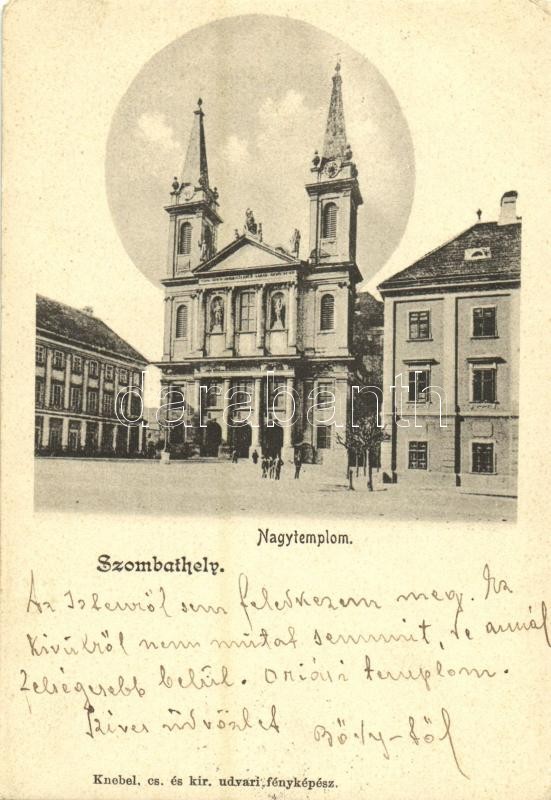 darabanth
Nagytemplom.
Szombathely.
Az Istenről sem feledkezem meg. Ez
kivülről nem mutat semmit, de annál
felségesebb belül. Óriási templom.
Szives üdvözlet
Knebel, cs. és kir. udvari fényképész.